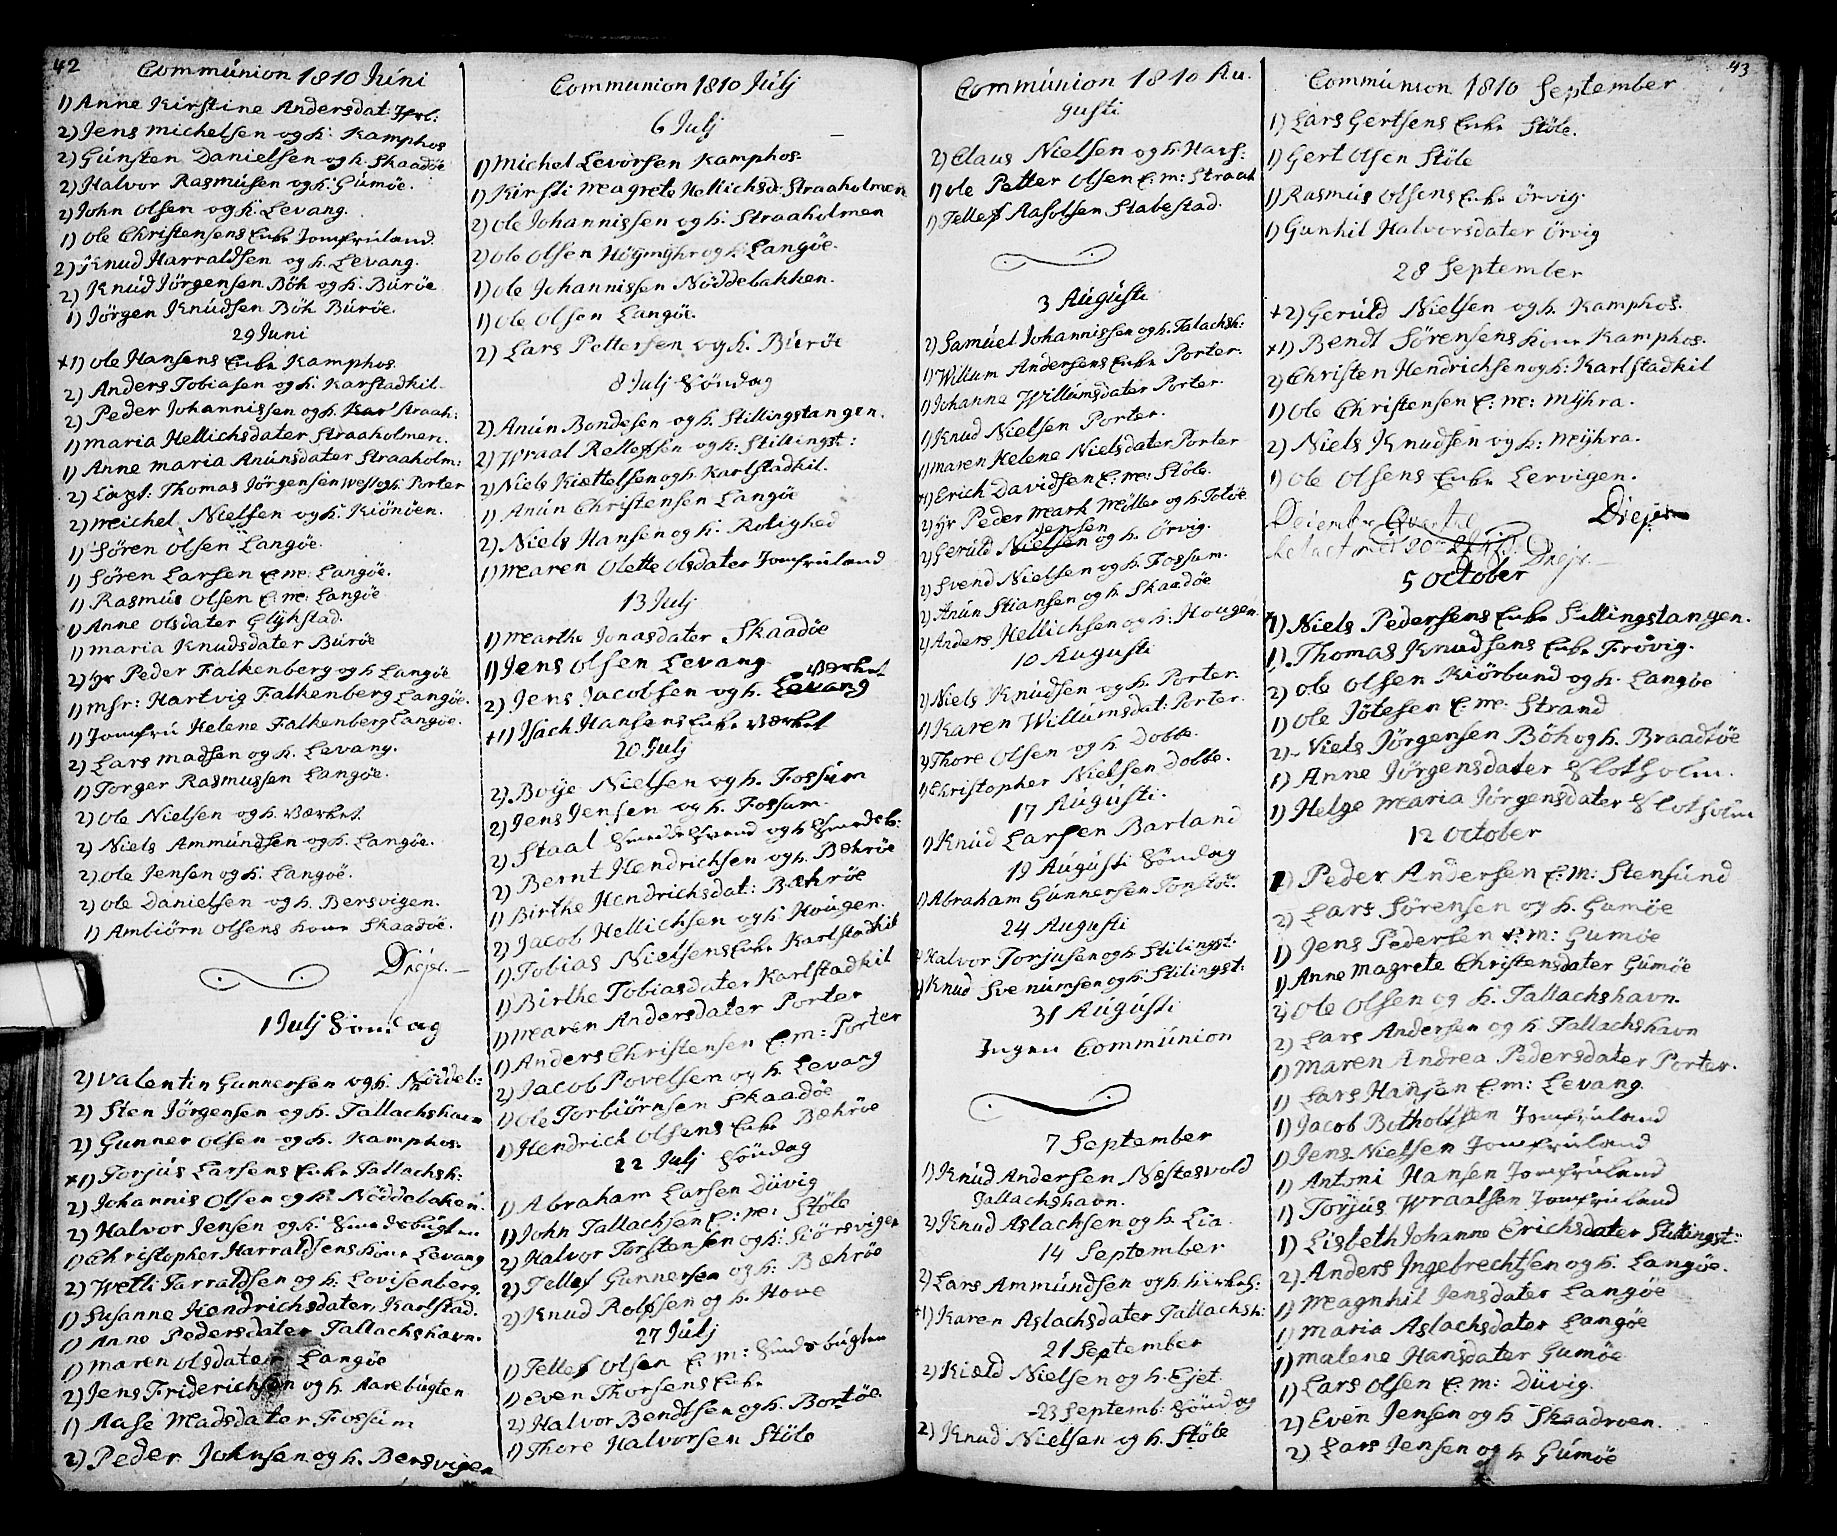 42
Communion 1810 Juni
1) Anne Kirstine Andersdat:
2) Jens Michelsen og h: Kamphos
2) Gunsten Danielsen og h. Skaadøe
2) Halvor Rasmusen og h: Gumøe.
2) John Olsen og h: Levang.
1) Ole Christensens Enke Jomfruland.
2) Knud Harraldsen og h. Levang.
2) Knud Jörgensen Böh og h. Buröe
1) Jörgen Knudsen Böh Buröe.
29 Juni
+1) Ole Hansens Enke Kamphos
2) Anders Tobiasen og h: Karstadkil.
2) Peder Johannissen og h. Straah:
1) Maria Hellichsdater Straaholmen.
1) Anne Maria Anunsdater Straaholm:
2) Thomas Jörgensen og h: Porter
2) Michel Nielsen og h: Kiönöen.
1) Sören Olsen Langöe.
1) Sören Larsen E: m: Langöe.
1) Rasmus Olsen E: m: Langöe
1) Anne Olsdater Glykstad.
1) Maria Knudsdater Buröe
2) Hr Peder Falkenberg og h Langöe
1) Msr: Hartvig Falkenberg Langöe.
1) Jomfru Helene Falkenberg Langöe.
2) Lars Madsen og h. Levang.
1) Torger Rasmussen Langöe.
2) Ole Nielsen og h. Værket
2) Niels Ammundsen og h. Langöe.
2) Ole Jensen og h: Langöe.
2) Ole Danielsen og h. Bersvigen.
1) Ambiörn Olsens Kone Skaadöe.
Drejer.
1 Julj Söndag
2) Valentin Gunnersen og h. Nöddeb:
2) Sten Jörgensen og h. Tallachshavn
2) Gunner Olsen og h. Kamphos.
*1) Torjus Larsens Enke Tallachsh:
2) Johannis Olsen og h: Nöddebaken.
2) Halvor Jensen og h: Smedsbugten
1) Christopher Harraldsens Kone Levang
2) Wetli Tarraldsen og h. Lovisenberg.
1) Susanne Hendrichsdater, Karlstad.
1) Anne Pedersdater Tallachshavn.
1) Maren Olsdater Langöe
2) Jens Friderichsen og h. Aarebugten
1) Aase Madsdater Fossum
2) Peder Johnsen og h. Bersvigen
Communion 1810 Julj
6 Julj
1) Michel Levorsen Kamphos.
1) Kirsti Magrete Hellichsd: Straaholmen
2) Ole Johannissen og h. Straaholmen
2) Ole Olsen Höymyhr og h: Langöe.
1) Ole Johannissen Nöddebakken.
1) Ole Olsen Langöe.
2) Lars Pettersen og h. Buröe
8 Julj Söndag
2) Anun Bondesen og h. Stillingstangen.
2) Wraal Rellefsen og h: Stillingst:
2) Niels Kiættelsen og h. Karlstadkil.
1) Anun Christensen Langöe
2) Niels Hansen og h. Rolighed
1) Maren Olette Olsdater Jomfruland
13 Julj
1) Marthe Jonasdater Skaadöe
1) Jens Olsen Levang
Værket
2) Jens Jacobsen og h. Levang
+1) Isach Hansens Enke Værket
20 Julj
2) Boye Nielsen og h. Fossum
2) Jens Jensen og h. Fossum.
2) Staal Smedesvend og h Smedsb:
2) Bernt Hendrichsen og h. Bæhröe
1) Birthe Hendrichsdat: Bæhröe
2) Jacob Hellichsen og h. Hougen.
1) Tobias Nielsens Enke Karlstadkil
1) Birthe Tobiasdater Karlstadkil
1) Maren Andersdater Porter
1) Anders Christensen E: m: Porter
2) Jacob Povelsen og h. Levang
1) Ole Torbiörnsen Skaadöe
1) Hendrich Olsens Enke Bæhröe
22 Julj Söndag
1) Abraham Larsen Düvig
1) John Tallachsen E: m: Stöle
2) Halvor Torstensen og h: Siörsvigen
2) Tellef Gunnersen og h: Bæhröe
2) Knud Rolfsen og h. Hove
27 Julj
1) Tellef Olsen E: m: Smedsbugten
1) Even Thorsens Enke
2) Halvor Bendtsen og h. Bortöe.
1) Thore Halvorsen Stöle
Communion 1810 Au.
gusti
2) Claus Nielsen og h:
1) Ole Petter Olsen E: m: Straah
1) Tellef Aasolsen Stabestad.
3 Augusti
2) Samuel Johannissen og h. Talachsh:
1) Willum Andersens Enke Porter.
1) Johanne Willumsdater Porter.
1) Knud Nielsen Porter.
1) Maren Helene Nielsdater Porter
1) Erich Davidsen E: m: Stöle.
2) Hr Peder Mark Möller og h. Totöe
Jensen
2) Geruld Nielsen og h. Örvig.
2) Svend Nielsen og h. Fossum.
2) Anun Stiansen og h. Skaadöe
2) Anders Hellichsen og h: Hougen.
10 Augusti
2) Niels Knudsen og h. Porter
1) Karen Willumsdat: Porter.
2) Thore Olsen og h. Dobbe.
1) Christopher Nielsen Dobbe.
17 Augusti.
1) Knud Larsen Barland
19 Augusti Söndag
1) Abraham Gunnersen Tonstöl.
24 Augusti
2) Halvor Torjusen og h. Stilingst.
2) Knud Svenumsen og h. Stilingst:
31 Augusti
Ingen Communion
7 September
1) Knud Andersen Næstesvold
Tallachshavn.
2) Knud Aslachsen og h. Lia.
14 September
2) Lars Ammundsen og h.
+1) Karen Aslachsdater Tallachsh:
21 September
2) Kiæld Nielsen og h. Ejet.
23 Septemb: Söndag
2) Knud Nielsen og h. Stöle
43
Communion 1810 September
1) Lars Gertsens Enke Stöle.
1) Gert Olsen Stöle
1) Rasmus Olsens Enke Örvig.
1) Gunhil Halvorsdater Örvig
28 September
+2) Geruld Nielsen og h. Kamphos.
*1) Bendt Sörensens Kone Kamphos.
2) Christen Hendrichsen og h: Karlstadkil
1) Ole Christensen E: m: Myhra.
2) Niels Knudsen og h: Myhra.
1) Ole Olsens Enke Lervigen.
Drejer
Drejer.
5 October
*1) Niels Pedersens Enke Stillingstangen.
1) Thomas Knudsens Enke Frövig.
2) Ole Olsen Kiörbund og h. Langöe
1) Ole Jötesen E: m: Strand
2) Niels Jörgensen Böh og h. Braadtöe
1) Anne Jörgensdater Slotholm.
1) Helge Maria Jörgensdater Slotholm
12 October
1) Peder Andersen E: m: Stensund
2) Lars Sörensen og h. Gumöe
1) Jens Pedersen E: m: Gumöe
1) Anne Magrete Christensdater Gumöe
2) Ole Olsen og h. Tallachshavn.
2) Lars Andersen og h. Tallachshavn
1) Maren Andrea Pedersdater Porter.
1) Lars Hansen E: m: Levang.
1) Jacob Botholtsen Jomfruland
1) Jens Nielsen Jomfruland
1) Antoni Hansen Jomfruland
1) Torjus Wraalsen Jomfruland
1) Lisbeth Johanne Erichsdater Stillingst:
2) Anders Ingebrechtsen og h. Langöe.
1) Magnhil Jensdater Langöe
1) Maria Aslachsdater Langöe
1) Malene Hansdater Gumöe
1) Lars Olsen E: m: Düvig.
2) Even Jensen og h Skaadroen.
2) Lars Jensen og h Gumöe